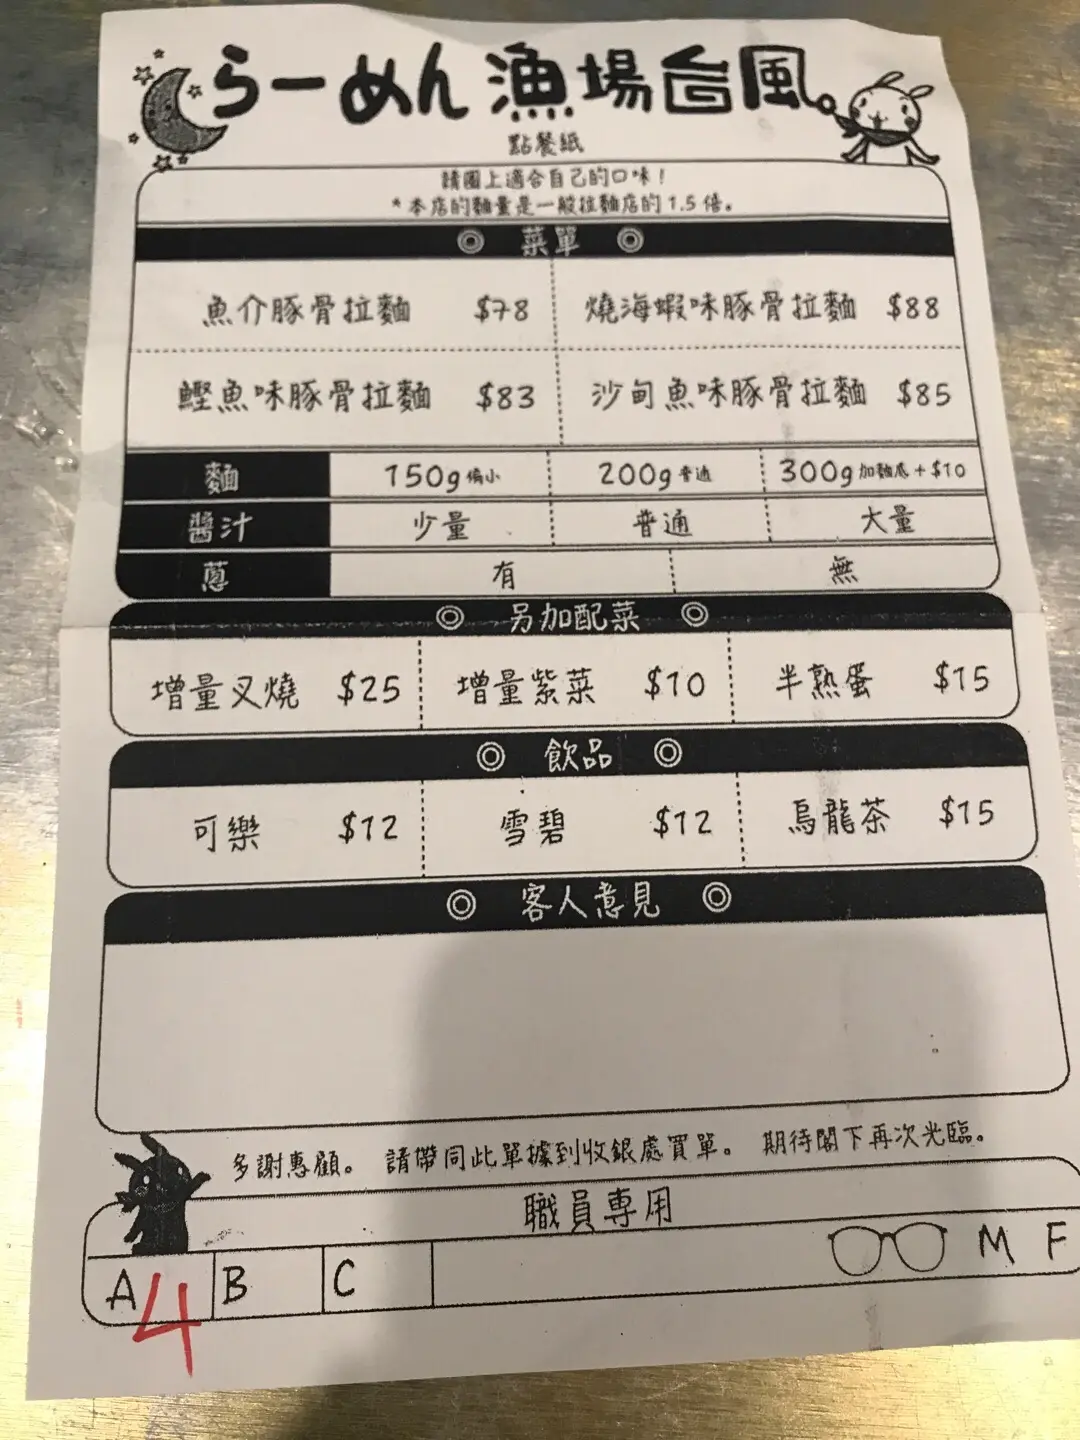 らーめん 漁場台風
點餐紙
請圈上適合自己的口味！
*本店的麵量是一般拉麵店的1.5倍。
◎ 菜單 ◎
魚介豚骨拉麵 $78 燒海蝦味豚骨拉麵 $88
鰹魚味豚骨拉麵 $83 沙甸魚味豚骨拉麵 $85
麵 150g偏小 200g普通 300g加麵底+$10
醬汁 少量 普通 大量
蔥 有 無
◎ 另加配菜 ◎
增量叉燒 $25 增量紫菜 $10 半熟蛋 $15
◎ 飲品 ◎
可樂 $12 雪碧 $12 烏龍茶 $15
◎ 客人意見 ◎
多謝惠顧。 請帶同此單據到收銀處買單。 期待閣下再次光臨。
職員專用
A 4 B C M F